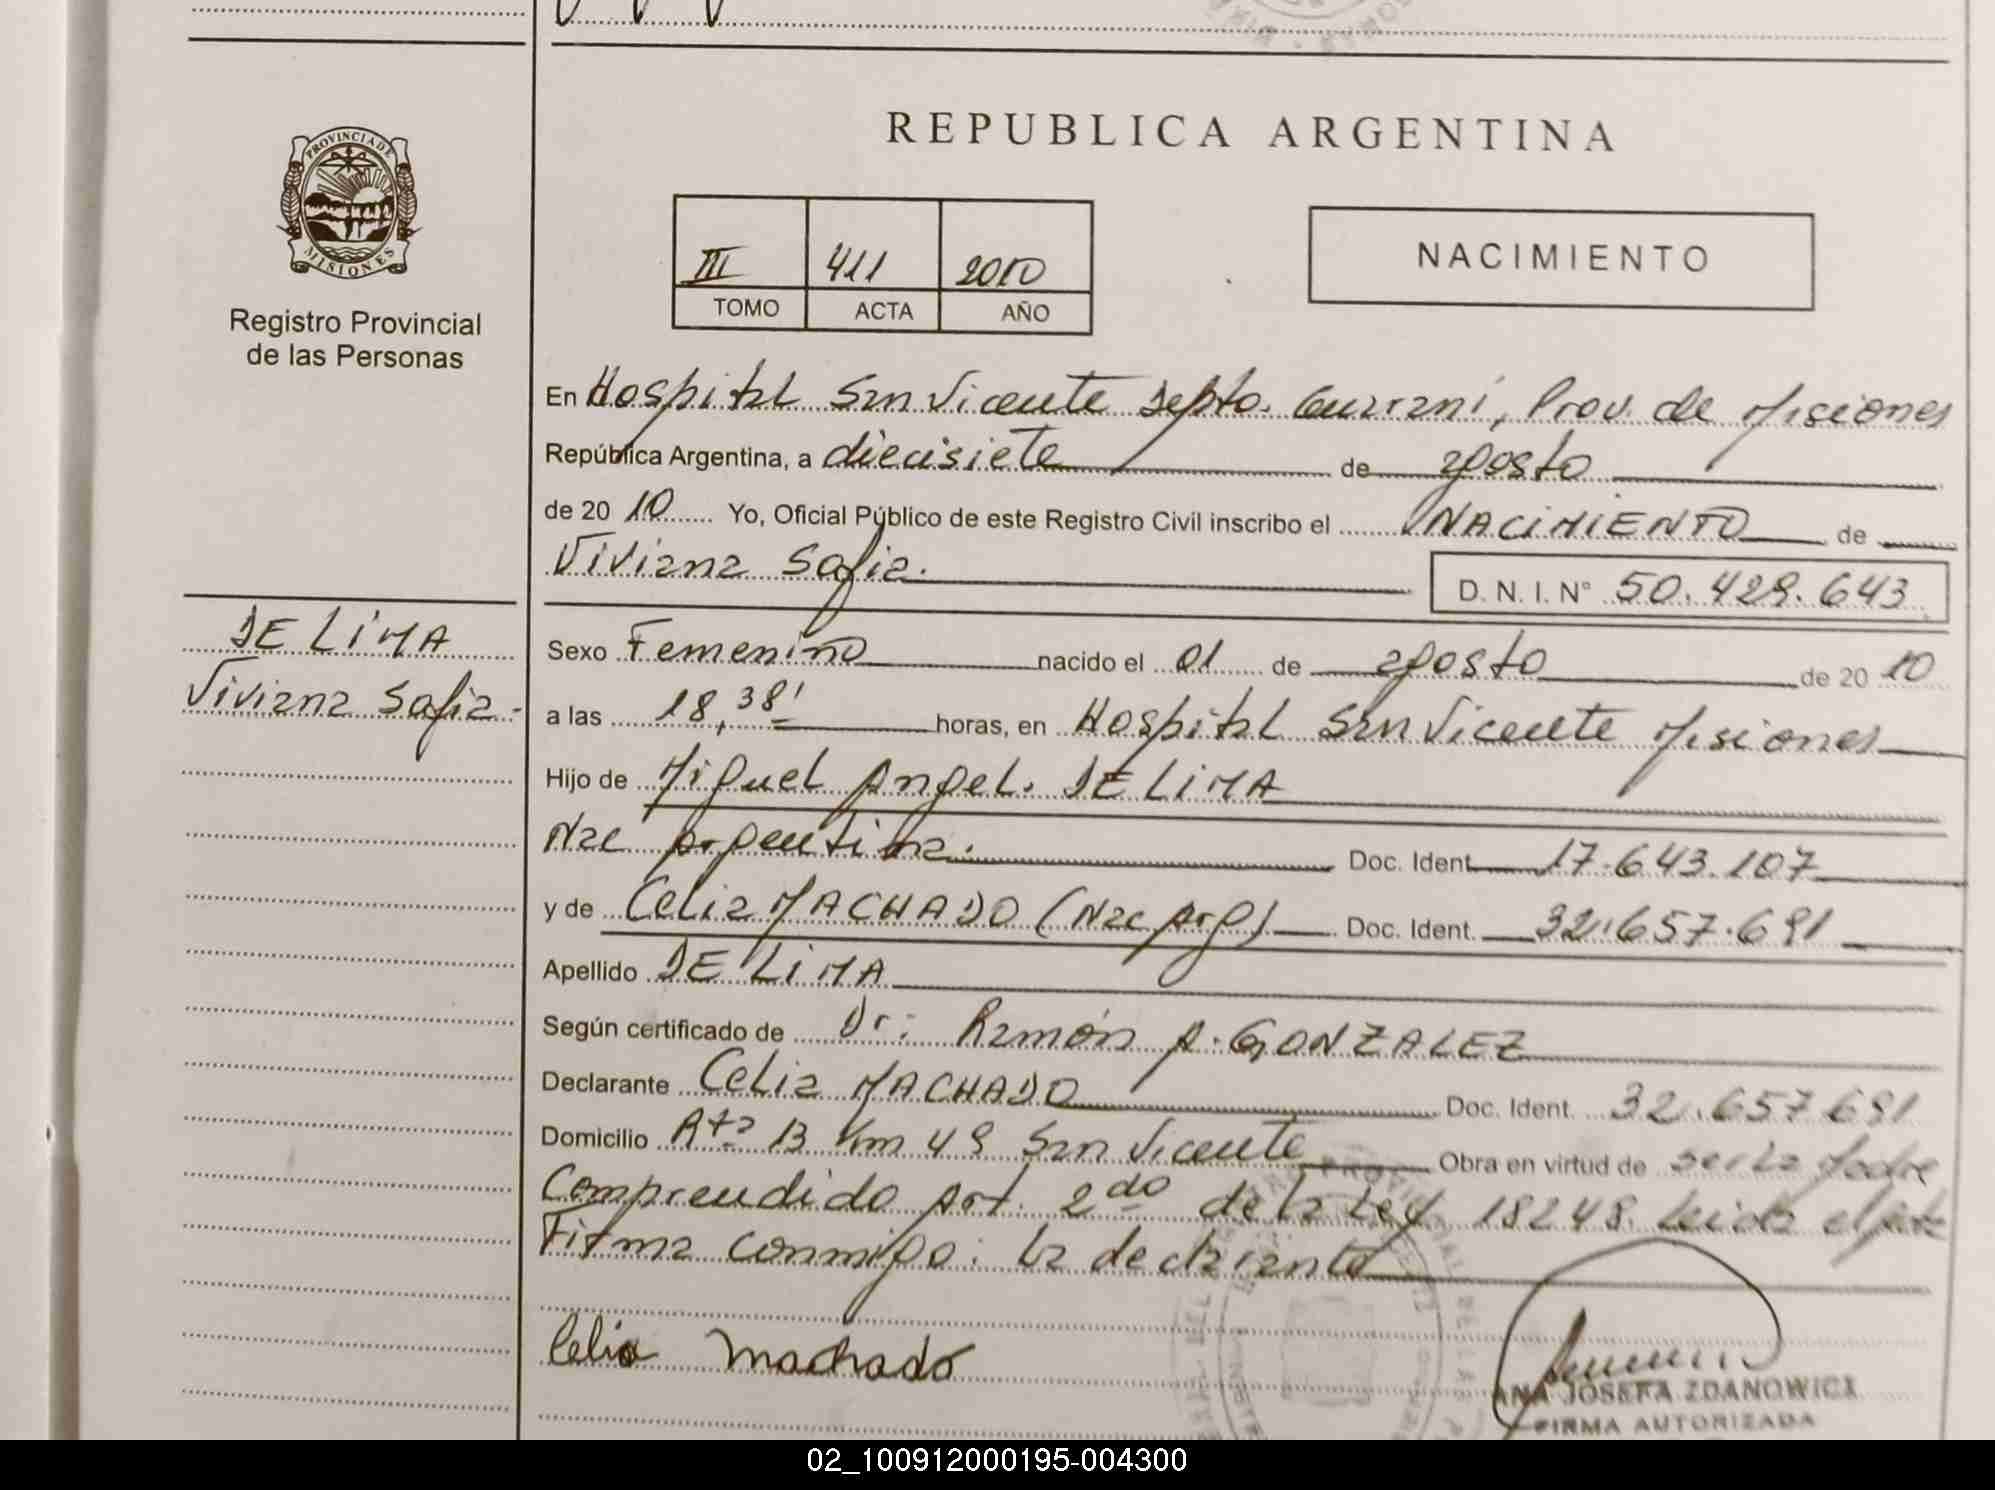 REPUBLICA ARGENTINA
PROVINCIA DE
MISIONES
Registro Provincial
de las Personas
III 411 2010
TOMO ACTA AÑO
NACIMIENTO
En Hospital San Vicente Depto. Guaraní, Prov. de Misiones
República Argentina, a diecisiete de agosto
de 20 10 Yo, Oficial Público de este Registro Civil inscribo el NACIMIENTO de
Viviana Sofia.
D. N. I. N° 50.429.643
DE LIMA
Viviana Sofia -
Sexo Femenino nacido el 01 de agosto de 20 10
a las 18,38' horas, en Hospital San Vicente Misiones
Hijo de Miguel Angel. DE LIMA
Nac Argentina. Doc. Ident. 17.643.107
y de Celia MACHADO (Nac Arg) Doc. Ident. 32.657.691
Apellido DE LIMA
Según certificado de Dr: Ramón A. GONZALEZ
Declarante Celia MACHADO Doc. Ident. 32.657.691
Domicilio Rta 13 Km 49 San Vicente Obra en virtud de ser la Madre
Comprendido Art. 2do de la Ley 18248. Leida el acta
Firma conmigo: la declarante
Celia Machado
ANA JOSEFA ZDANOWICZ
FIRMA AUTORIZADA
02_100912000195-004300